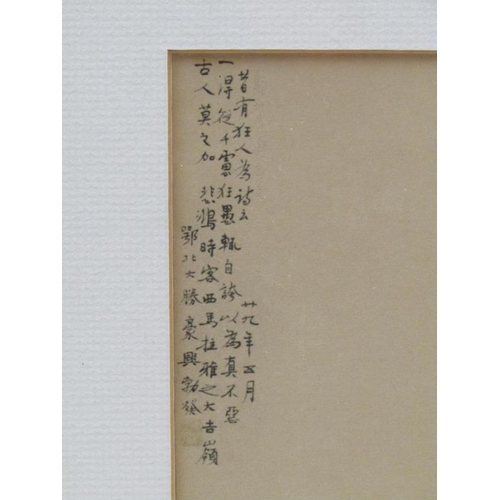 昔有狂人為詩云
廿九年五月
一得從千慮狂愚輒自誇以為真不惡
古人莫之加 悲鴻時客西馬拉雅之大吉嶺
鄂北大勝豪興勃發